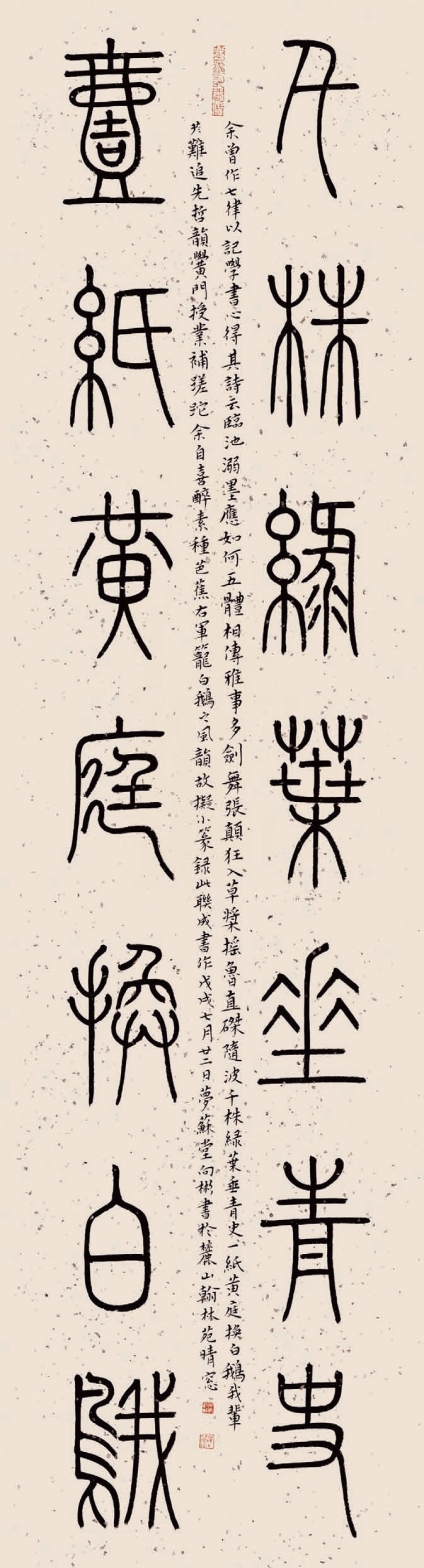 千株綠葉垂青史
余曾作七律以記學書心得其詩云臨池溺墨應如何五體相傳雅事多劍舞張顛狂入草槳搖魯直磔隨波千株緑葉垂青史一紙黃庭換白鵝我輩
難追先哲韻黌門授業補蹉跎余自喜醉素種芭蕉右軍籠白鵝之風韻故擬小篆録此聯成書作戊戌七月廿二日夢蘇堂向彬書於麓山翰林苑晴窓
壹紙黃庭換白鵝